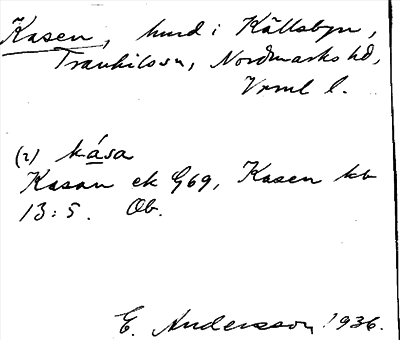 Kasen, hmd i Källsbyn,
Trankils sn, Nordmarks hd,
Vrml l.
(2) kåsa
Kasan ek G69, Kasen kb
13:5. Ob.
E. Andersson 1936.